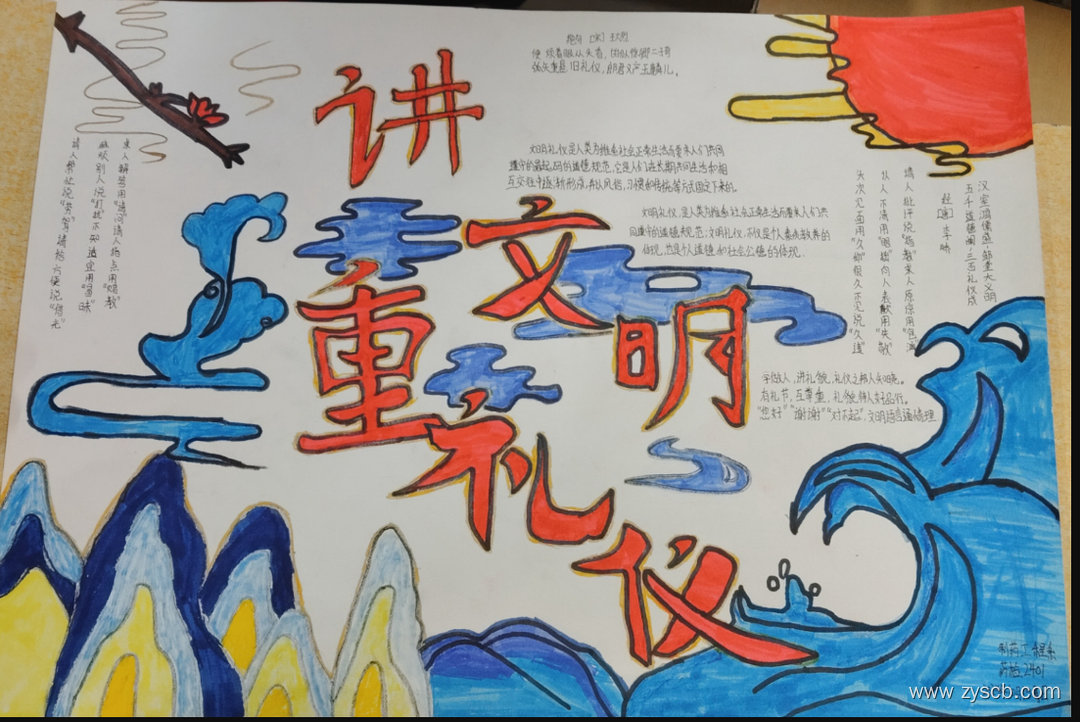 讲
文明
重
礼
仪
绝句 [宋]
文明礼仪是人类为维系社会正常生活而要求人们共同
遵守的最起码的道德规范，它是人们在长期共同生活和相
互交往中逐渐形成，并以风俗、习惯和传统等方式固定下来的。
文明礼仪，是人类为维系社会正常生活而要求人们共
同遵守的道德规范；文明礼仪，不仅是个人素质教养的
体现，也是个人道德和社会公德的体现。
汉室鸿儒盛，邹堂大义明
五千道德阃，三百礼仪成
经 [唐] 李峤
请人批评说“指教”求人原谅用“包涵”
认人不清用“眼拙”向人表歉用“失敬”
头次见面用“久仰”很久不见说“久违”
学做人，讲礼貌，礼仪之邦人人知晓。
有礼节，互尊重，礼貌待人好品行，
“您好”“谢谢”“对不起”，文明语言通情理
求人解答用“请问”请人指点用“赐教”
麻烦别人说“打扰”不知适宜用“冒昧”
请人帮忙说“劳驾”请给方便说“借光”
制药工程系
药检2401
www.zyscb.com